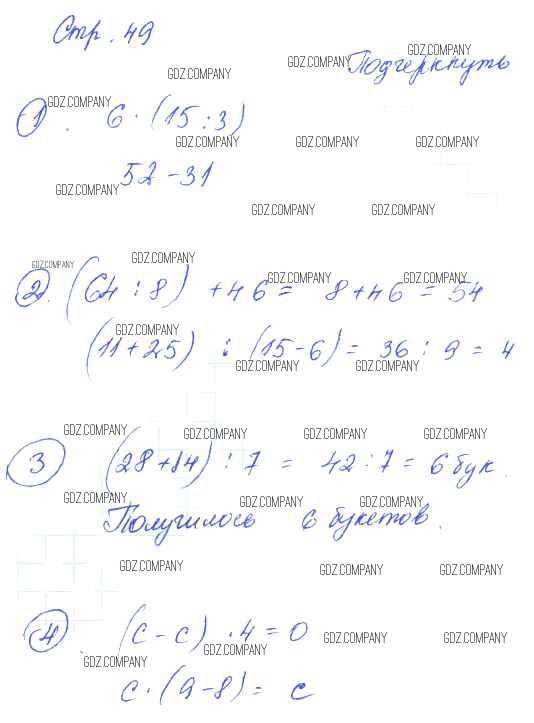 Стр. 49
GDZ.COMPANY GDZ.COMPANY GDZ.COMPANY Подчеркнуть
GDZ.COMPANY
1. 6 · (15 : 3)
GDZ.COMPANY GDZ.COMPANY GDZ.COMPANY
52 - 31
GDZ.COMPANY GDZ.COMPANY GDZ.COMPANY
GDZ.COMPANY GDZ.COMPANY GDZ.COMPANY GDZ.COMPANY
2. (64 : 8) + 46 = 8 + 46 = 54
GDZ.COMPANY
(11 + 25) : (15 - 6) = 36 : 9 = 4
GDZ.COMPANY GDZ.COMPANY
GDZ.COMPANY GDZ.COMPANY GDZ.COMPANY GDZ.COMPANY
3 (28 + 14) : 7 = 42 : 7 = 6 бук.
GDZ.COMPANY GDZ.COMPANY GDZ.COMPANY
Получилось 6 букетов.
GDZ.COMPANY GDZ.COMPANY GDZ.COMPANY
4. (с - с) · 4 = 0
GDZ.COMPANY GDZ.COMPANY GDZ.COMPANY GDZ.COMPANY
с · (9 - 8) = с